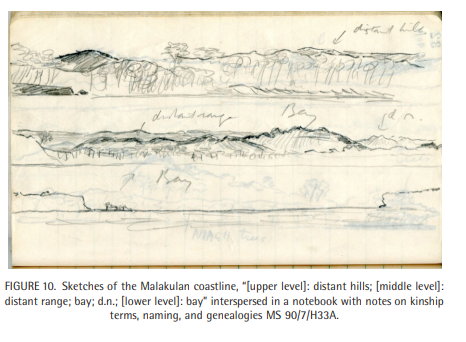 distant hills
distant range Bay d.n.
Bay
FIGURE 10. Sketches of the Malakulan coastline, “[upper level]: distant hills; [middle level]:
distant range; bay; d.n.; [lower level]: bay” interspersed in a notebook with notes on kinship
terms, naming, and genealogies MS 90/7/H33A.